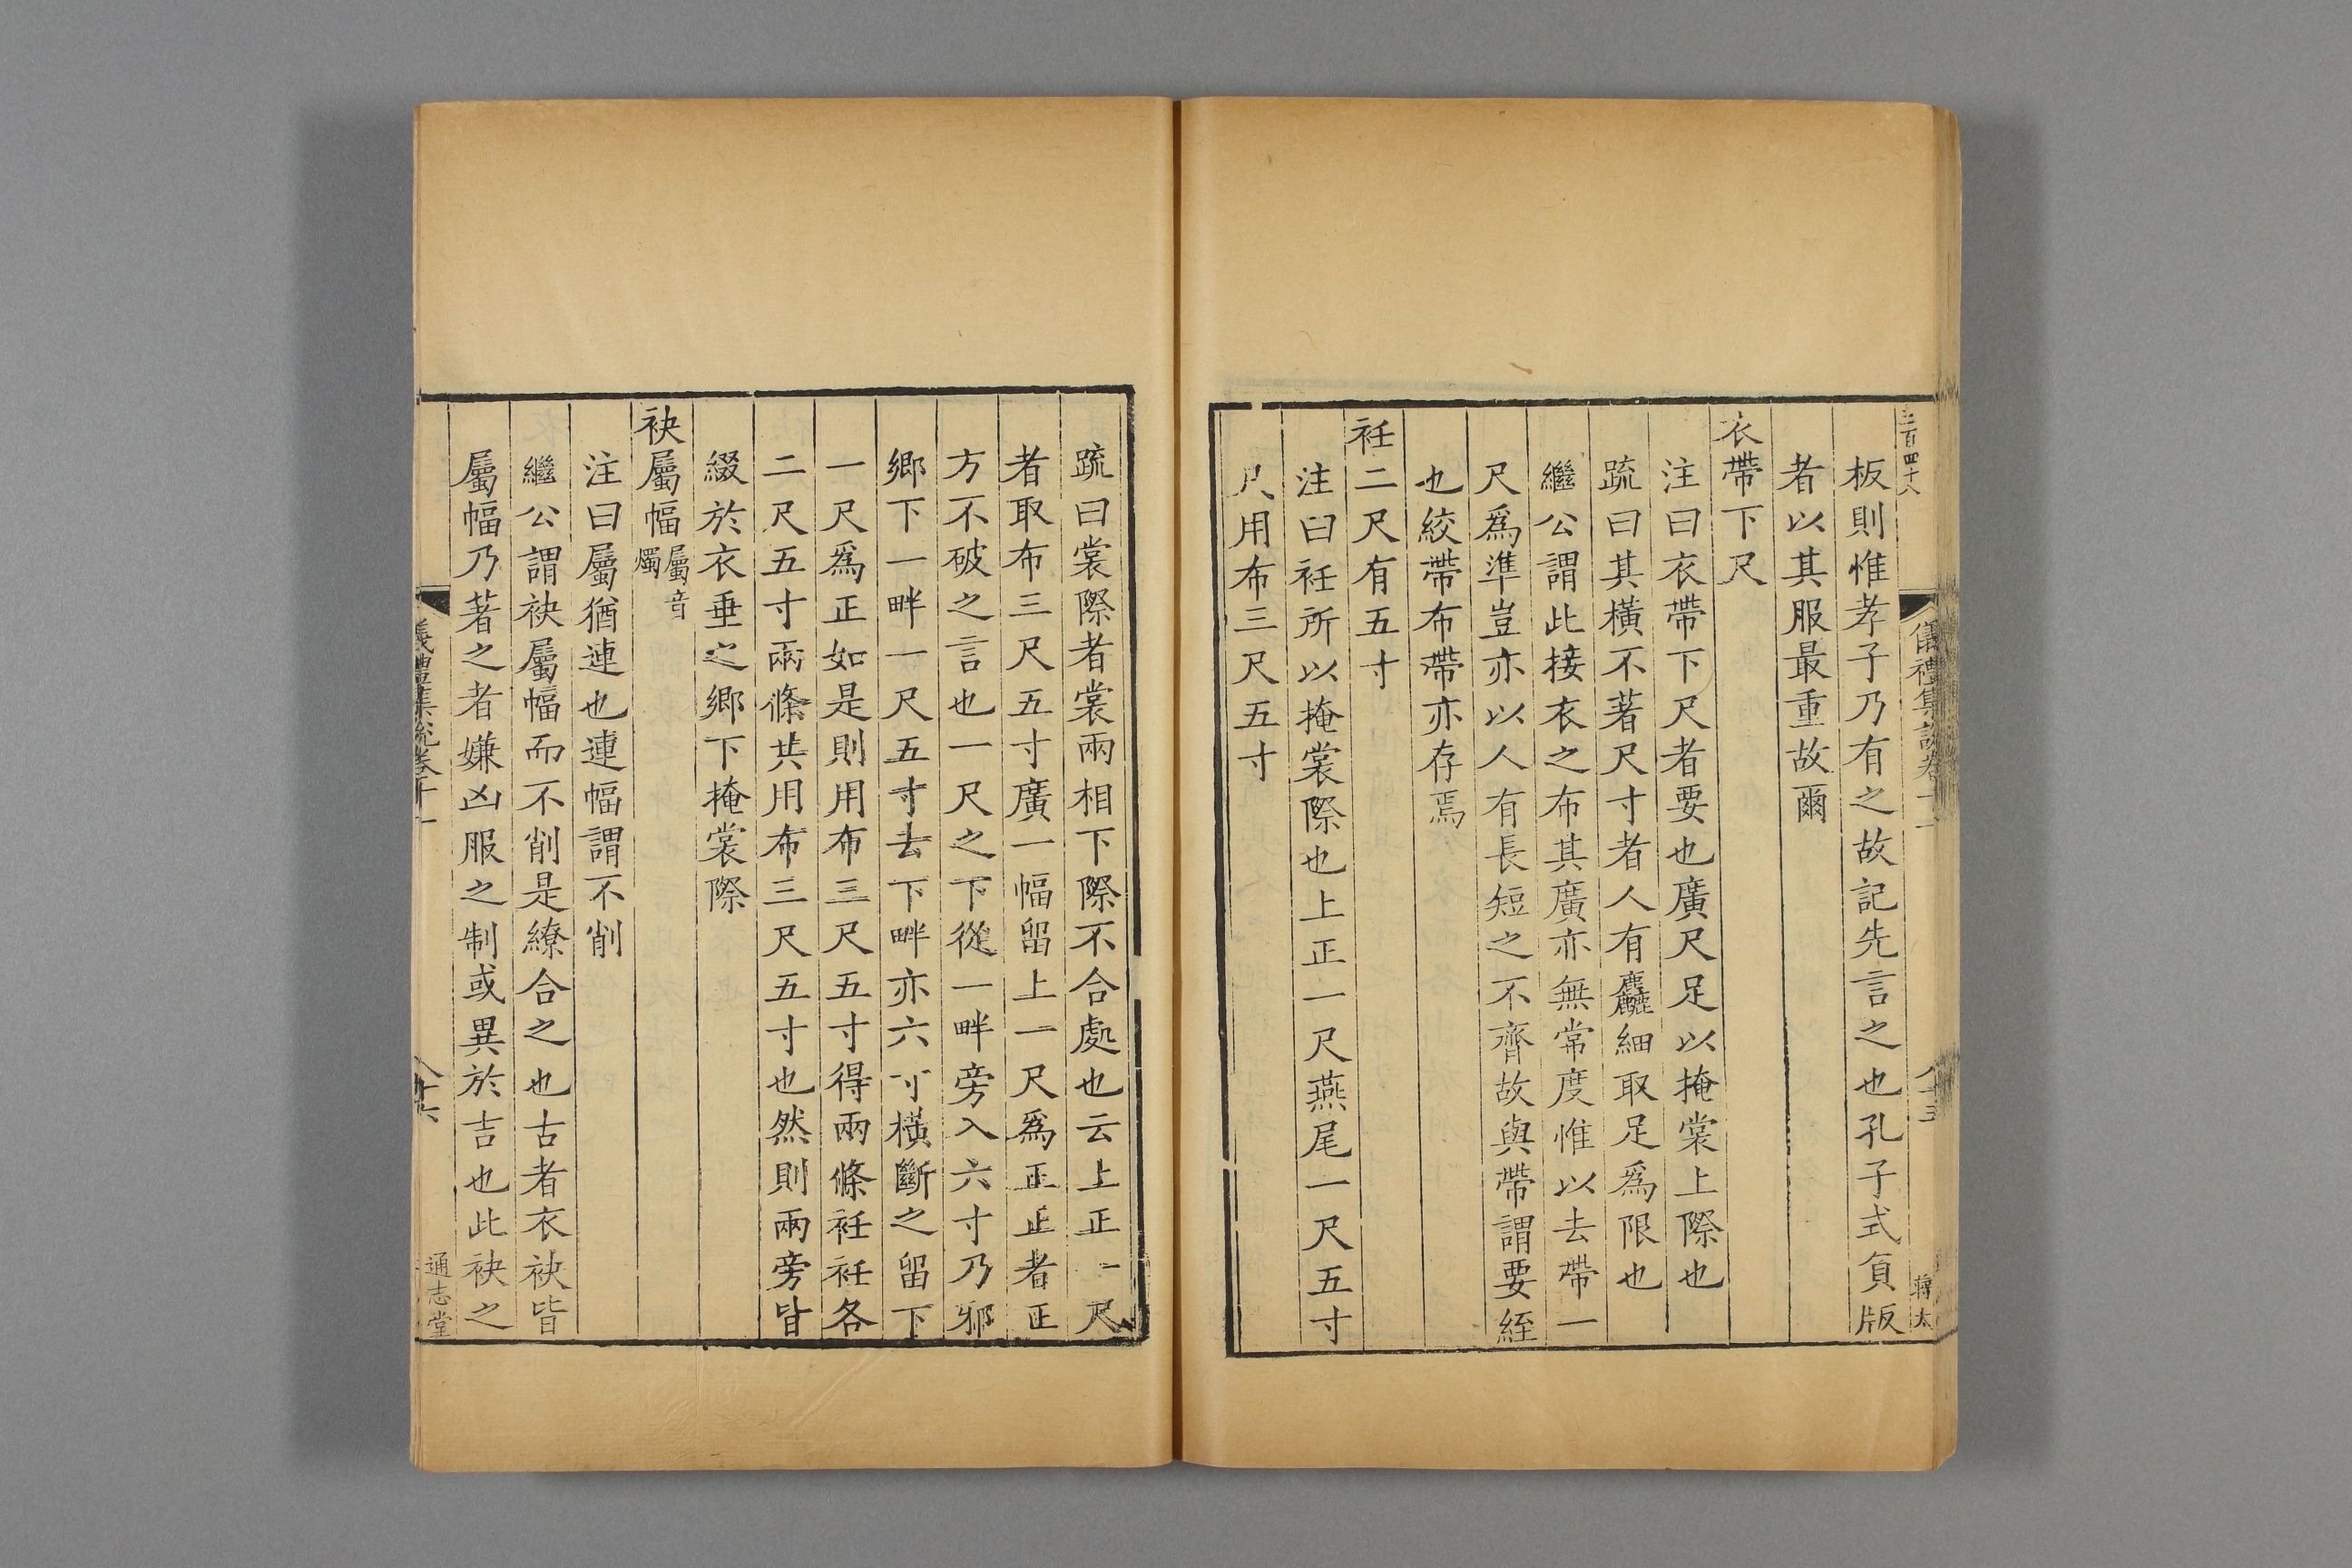 三百四十八
儀禮集說卷十一
蔣太
板則惟孝子乃有之故記先言之也孔子式負版
者以其服最重故爾
衣帶下尺
注曰衣帶下尺者要也廣尺足以掩裳上際也
疏曰其橫不著尺寸者人有麤細取足爲限也
繼公謂此接衣之布其廣亦無常度惟以去帶一
尺爲準豈亦以人有長短之不齊故與帶謂要絰
也絞帶布帶亦存焉
衽二尺有五寸
注曰衽所以掩裳際也上正一尺燕尾一尺五寸
凡用布三尺五寸
疏曰裳際者裳兩相下際不合處也云上正一尺
者取布三尺五寸廣一幅留上一尺爲正正者正
方不破之言也一尺之下從一畔旁入六寸乃邪
鄉下一畔一尺五寸去下畔亦六寸橫斷之留下
一尺爲正如是則用布三尺五寸得兩條衽衽各
二尺五寸兩條共用布三尺五寸也然則兩旁皆
綴於衣垂之鄉下掩裳際
袂屬幅屬音燭
注曰屬猶連也連幅謂不削
繼公謂袂屬幅而不削是繚合之也古者衣袂皆
屬幅乃著之者嫌凶服之制或異於吉也此袂之
儀禮集說卷十一
十六
通志堂